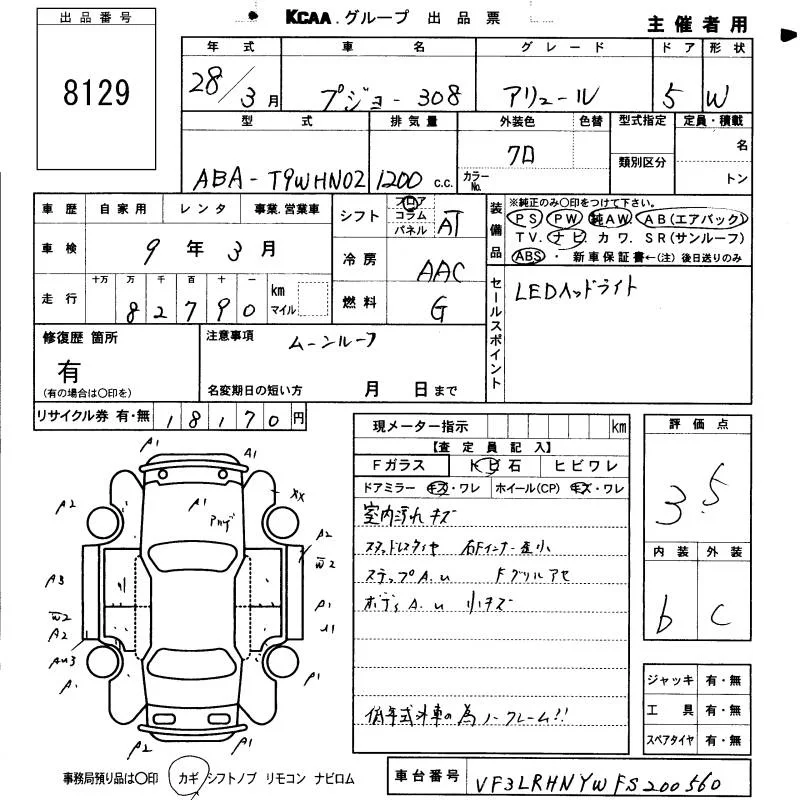 出品番号
8129
KCAA.グループ 出品票
主催者用
年式 車名 グレード ドア 形状
28/3月 プジョー308 アリュール 5 W
型式 排気量 外装色 色替 型式指定 定員・積載
ABA-T9WHN02 1200 c.c. クロ カラーNo. 類別区分 名 トン
車歴 自家用 レンタ 事業.営業車
車検 9年3月
走行 十万 万 千 百 十 一
82790 km マイル
シフト フロア コラム パネル AT
冷房 AAC
燃料 G
装備品
※純正のみ〇印をつけて下さい。
PS PW 純AW. AB(エアバック)
TV. ナビ. カワ. SR(サンルーフ)
ABS ・ 新車保証書←(注) 後日送りのみ
セールスポイント
LEDヘッドライト
修復歴 箇所
有
(有の場合は〇印を)
注意事項 ムーンルーフ
名変期日の短い方 月 日まで
リサイクル券 有・無 18170円
現メーター指示 km
【査定員記入】
Fガラス トビ石 ヒビワレ
ドアミラー キズ・ワレ ホイール(CP) キズ・ワレ
室内汚れキズ
スタッドレスタイヤ 右Fインナー歪小
ステップA.u Fグリルアセ
ボディA.u 小キズ
低年式外車の為ノークレーム!!
評価点
3.5
内装 外装
b C
ジャッキ 有・無
工具 有・無
スペアタイヤ 有・無
A1 A1
A2 A1 XX
アハゲ
A2
W2
A3 A1
W2
A2
AU3
A. A1
A2 A1
事務局預り品は〇印 カギ シフトノブ リモコン ナビロム
車台番号 VF3LRHNYWFS200560